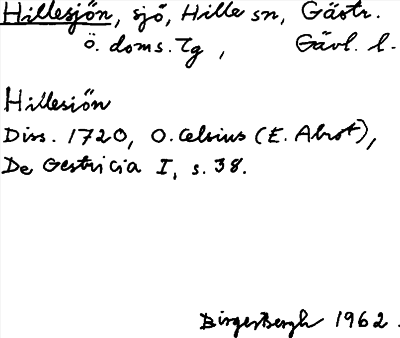 Hillesjön, sjö, Hille sn, Gästr.
Ö. doms. Tg, Gävl. l.
Hillesiön
Diss. 1720, O. Celsius (E. Abrot),
De Gestricia I, s. 38.
Birger Bergh 1962.